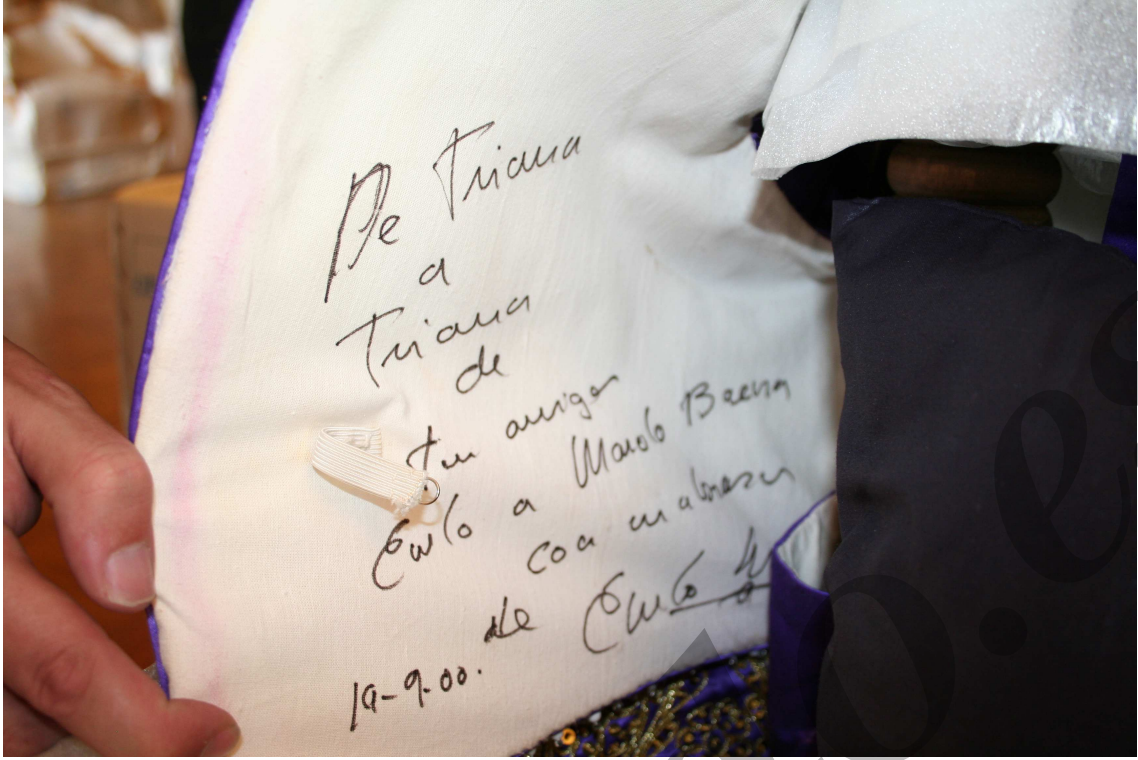 De Triana
a
Triana
de
tu amigo
Emilio a Manolo Baena
con un abrazo
de Emilio
19-9-00.